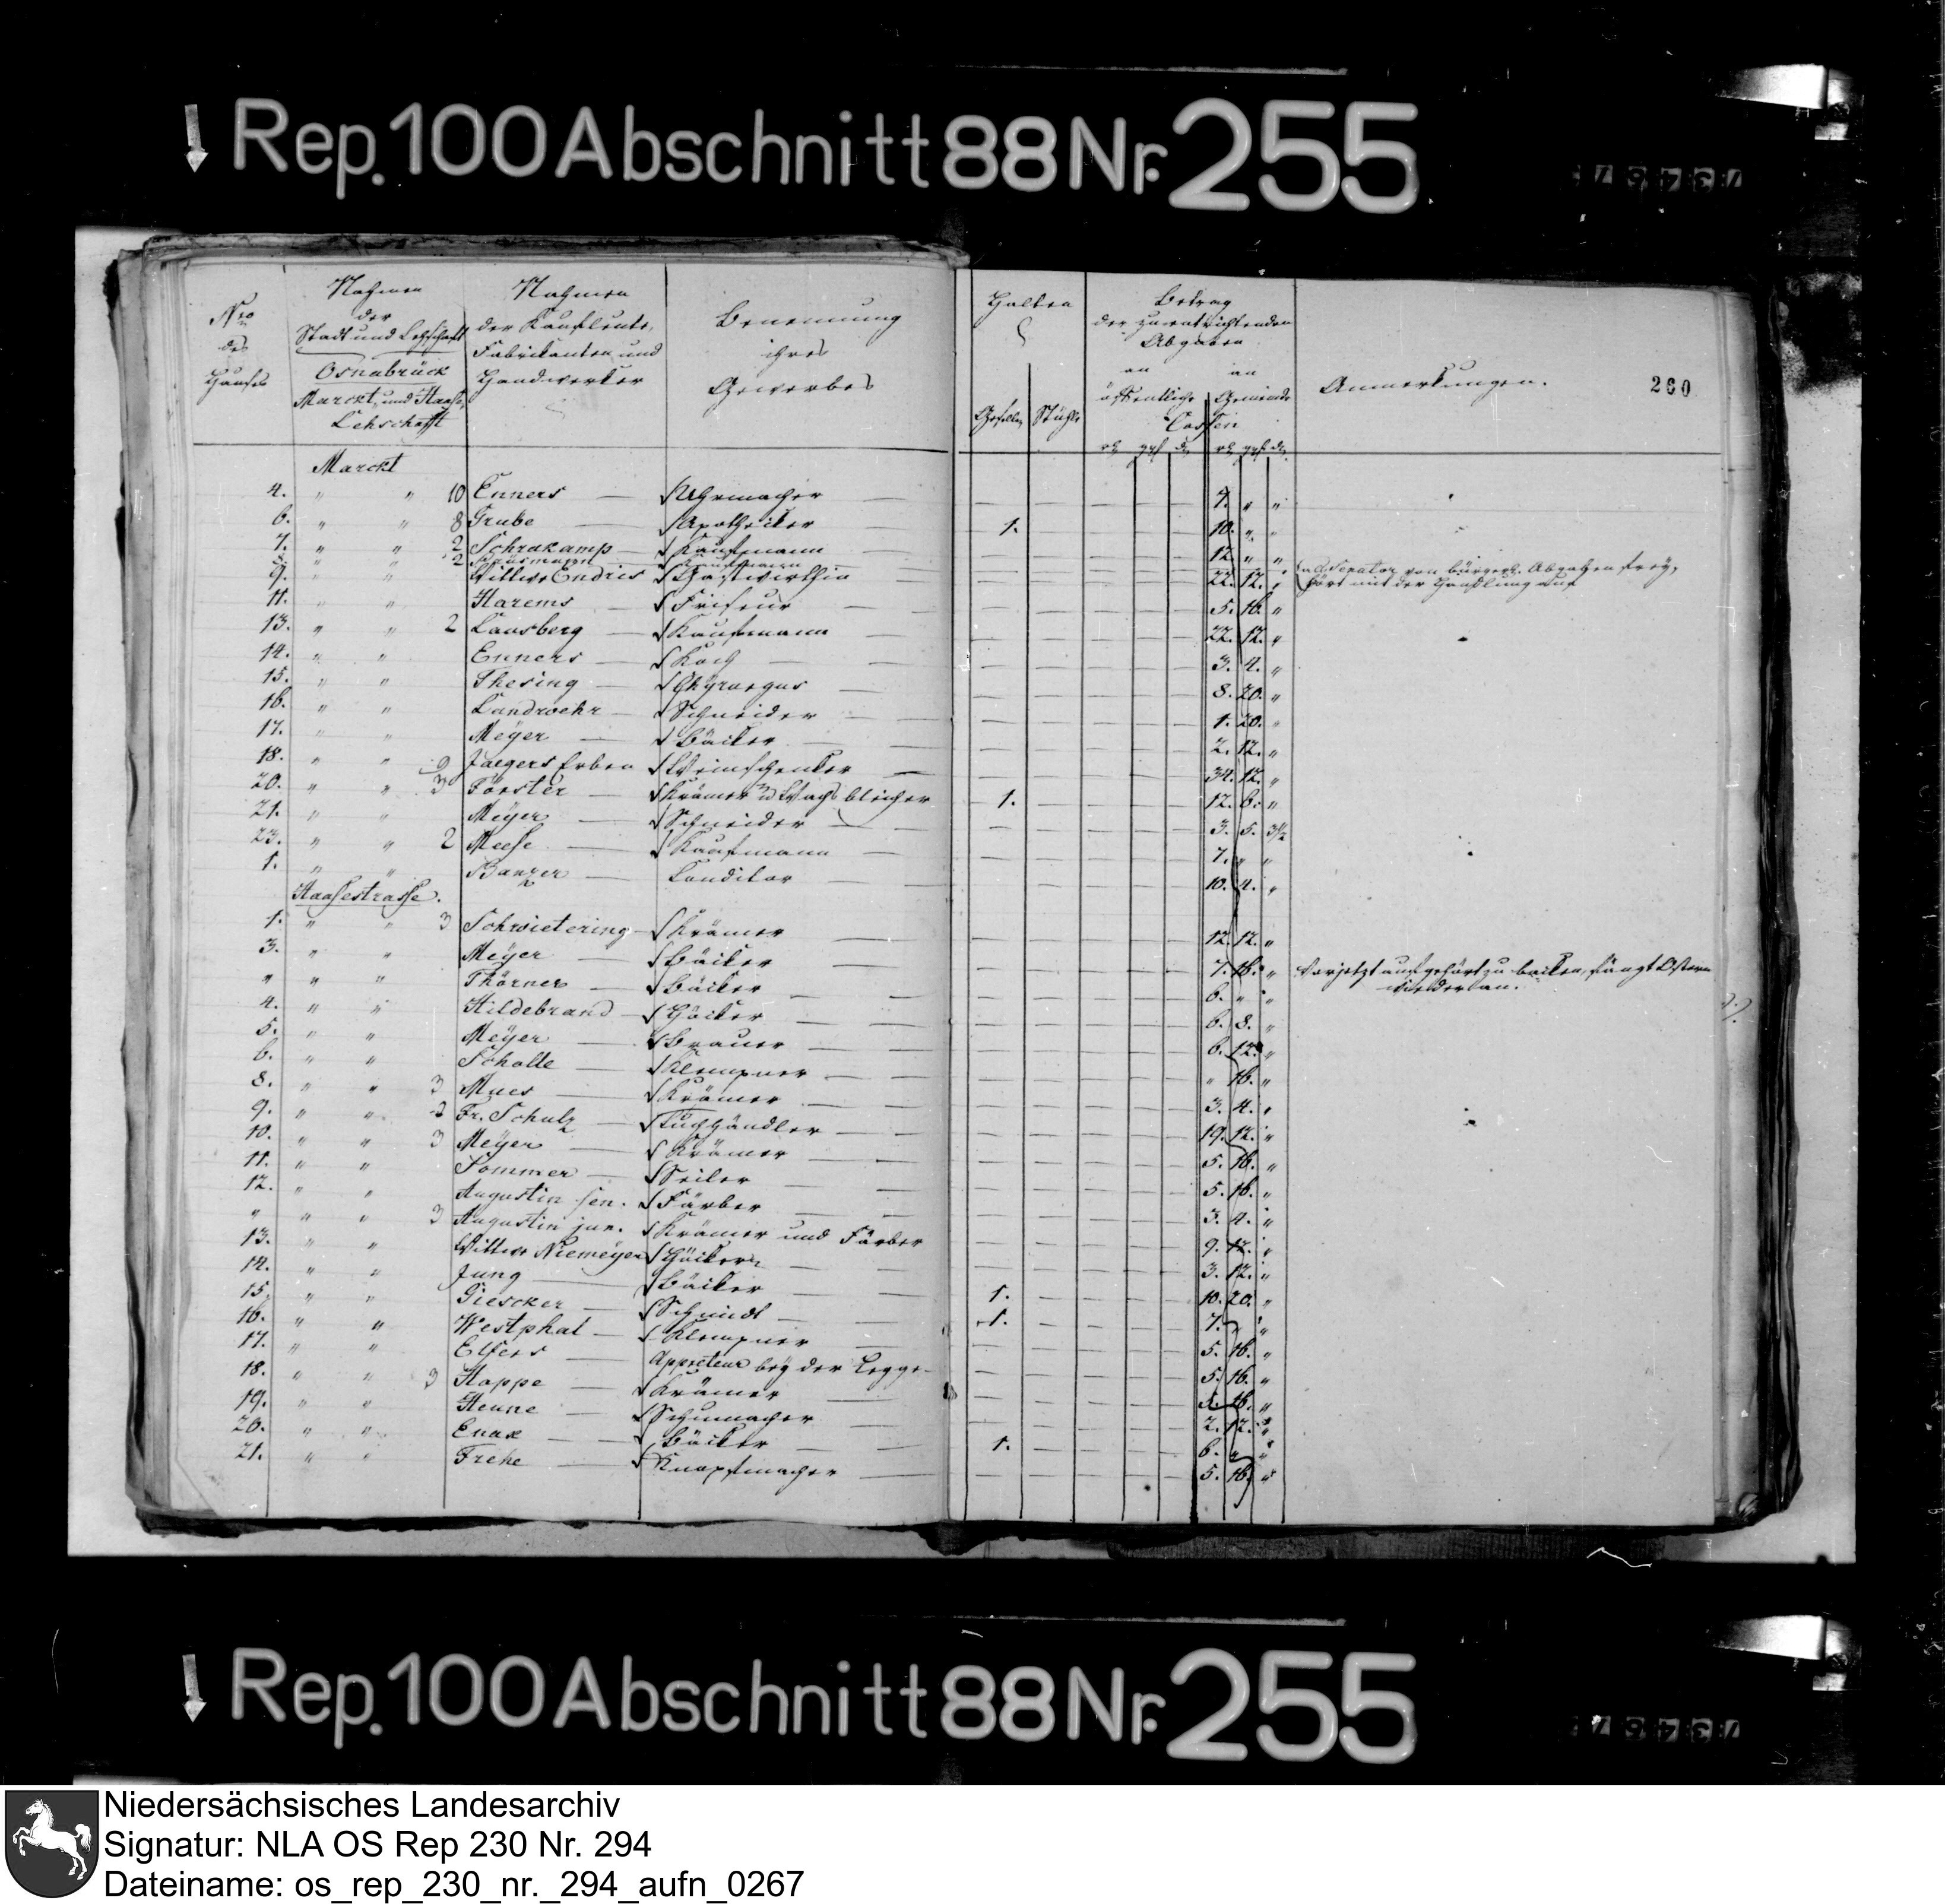 Rep. 100 Abschnitt 88 Nr. 255
Nro des Hauses
Nahmen der Stadt und Lehschaft
Osnabrück
Marckt, und Haase, Lehschafft
Nahmen der Kaufleute, Fabrikanten und Handwerker
Benennung ihres Gewerbes
Halten
Gesellen Stühle
Betrag der zu entrichtenden Abgaben
an öffentliche an Gemeinde Cassen
Anmerkungen.
260
Marckt
4. " " 10 Enners — Uhrmacher — 7. " "
6. " " 8 Grube — Apotheker — 1. 10. " "
7. " " 2 Schrakamp — Kaufmann — 12. " "
8. " " 2 Kaufmann
als Senator von bürgerl. Abgaben frey, hört mit der Handlung auf
9. " " Wittwe Endris Gastwirthin — 22. 12. "
11. " " Harems — Friseur — 5. 16. "
13. " " 2 Lansberg — Kaufmann — 22. 12. "
14. " " Enners — Koch — 3. 4. "
15. " " Thesing — Chyrurgus — 8. 20. "
16. " " Landwehr — Schneider — 1. 20. "
17. " " Meÿer — Bäcker — 2. 12. "
18. " " 9 Jaegers Erben Weinschenker — 34. 12. "
20. " " 3 Förster — Krämer u Wachsbleicher — 1. 12. 6. "
21. " " Meÿer — Schneider — 3. 5. 3½
23. " " 2 Meese — Kaufmann — 7. " "
1. " " Banzer — Conditor — 10. 4. "
Haasestrasse.
1. " " 3 Schwietering — Krämer — 12. 12. "
3. " " Meÿer — Bäcker — 7. 16. " Vorjetzt aufgehört zu backen, fängt Ostern wieder an.
" " " Thörner — Bäcker — 6. " "
4. " " Hildebrand — Höcker — 6. 8. "
5. " " Meÿer — Brauer — 6. 12. "
6. " " Scholle — Klempner — " 16. "
8. " " 3 Mues — Krämer — 3. 4. "
9. " " 2 Fr. Schulz — Tuchhändler — 19. 12. "
10. " " 3 Meÿer — Krämer — 5. 16. "
11. " " Sommer — Seiler — 5. 16. "
12. " " Augustin sen. Färber — 3. 4. "
" " " 3 Augustin jun. Krämer und Färber 9. 12. "
13. " " Wittwe Niemeÿer Höckerin — 3. 12. "
14. " " Jung — Bäcker — 1. 10. 20. "
15. " " Piescker — Schmidt — 1. 7. " "
16. " " Westphal — Klempner — 5. 16. "
17. " " Elfers — Appreteur beÿ der Legge — 5. 16. "
18. " " 3 Hoppe — Krämer — 5. 16. "
19. " " Henne — Schumacher — 2. 12. "
20. " " Enax — Bäcker — 1. 6. " "
21. " " Frehe — Knopfmacher — 5. 16. "
Rep. 100 Abschnitt 88 Nr. 255
Niedersächsisches Landesarchiv
Signatur: NLA OS Rep 230 Nr. 294
Dateiname: os_rep_230_nr._294_aufn_0267